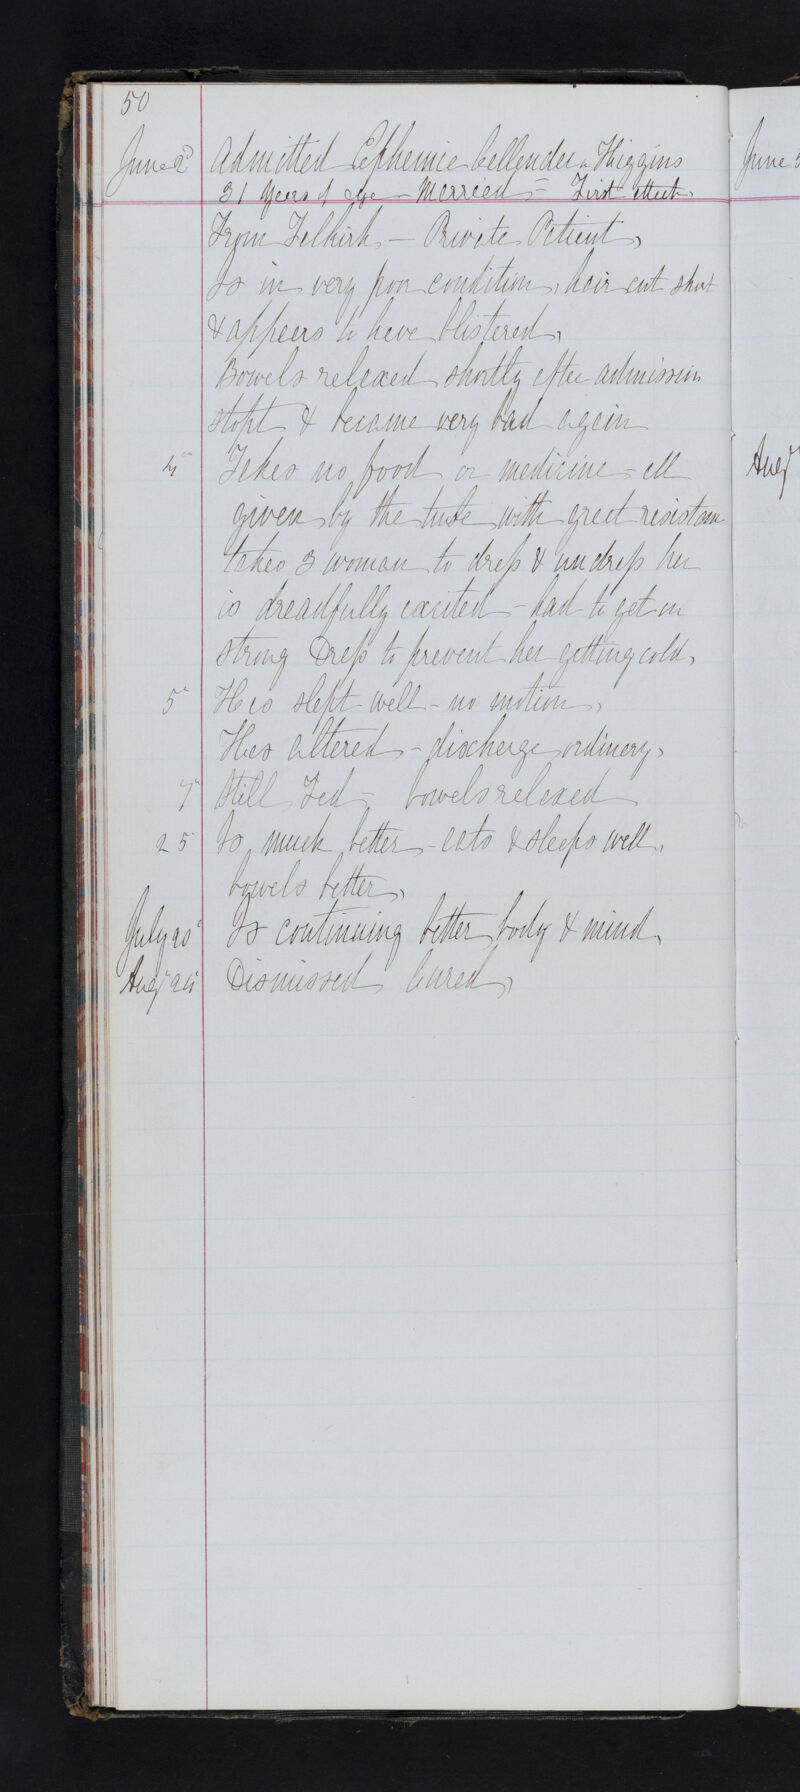 50
June 2d Admitted Ephemie Callender or Higgins June
31 years of age - Married - First attack,
From Falkirk - Private Patient,
Is in very poor condition, hair cut short
& appears to have blistered,
Bowels relaxed shortly after admission
stopt & became very bad again
4th Takes no food or medicine - all Augt
given by the tube with great resistan
takes 3 woman to dress & undress her
is dreadfully excited - had to get on
strong Dress to prevent her getting cold,
5th Has slept well - no motion,
Has altered - discharge ordinary,
7th Still Fed - bowels relaxed
25 Is much better - eats & sleeps well,
bowels better,
July 20th Is continuing better body & mind,
Augt 24 Dismissed Cured,